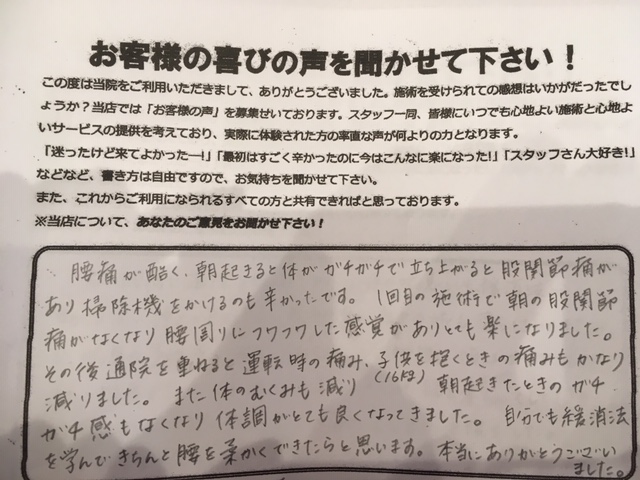 お客様の喜びの声を聞かせて下さい！
この度は当院をご利用いただきまして、ありがとうございました。施術を受けられての感想はいかがだったでし
ょうか？当店では「お客様の声」を募集せいております。スタッフ一同、皆様にいつでも心地よい施術と心地よ
いサービスの提供を考えており、実際に体験された方の率直な声が何よりの力となります。
「迷ったけど来てよかったー!」「最初はすごく辛かったのに今はこんなに楽になった!」「スタッフさん大好き!」
などなど、書き方は自由ですので、お気持ちを聞かせて下さい。
また、これからご利用になられるすべての方と共有できればと思っております。
※当店について、あなたのご意見をお聞かせ下さい！
腰痛が酷く、朝起きると体がガチガチで立ち上がると股関節痛が
あり掃除機をかけるのも辛かったです。1回目の施術で朝の股関節
痛がなくなり腰周りにフワフワした感覚がありとても楽になりました。
その後通院を重ねると運転時の痛み、子供を抱くときの痛みもかなり
(16kg)
減りました。また体のむくみも減り 朝起きたときのガチ
ガチ感もなくなり体調がとても良くなってきました。自分でも緩消法
を学んできちんと腰を柔かくできたらと思います。本当にありがとうござい
ました。